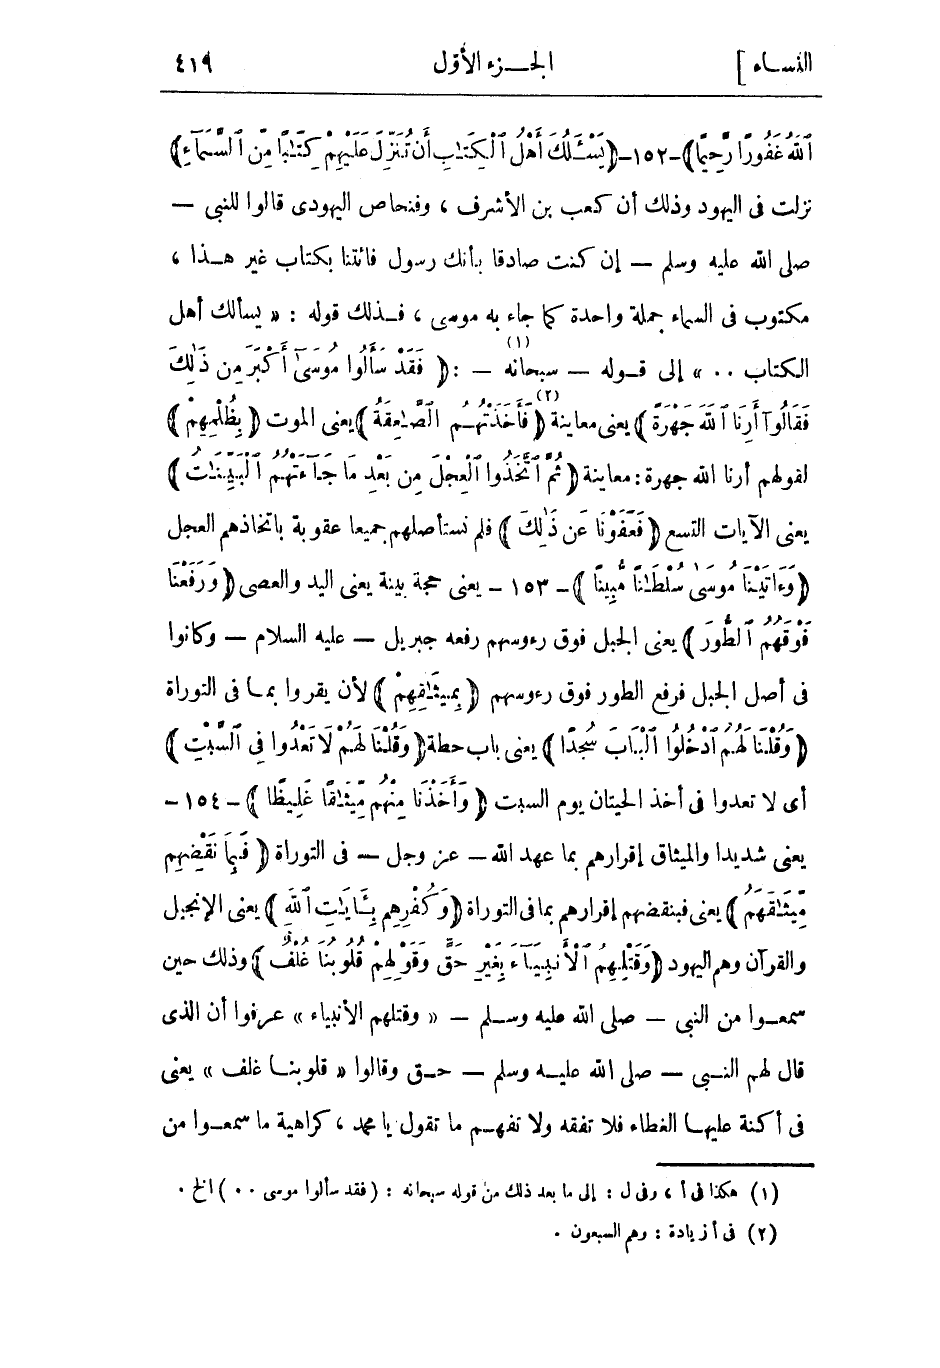 النساء ] الجـــزء الأول ٤١٩
ٱللَّهُ غَفُورًا رَّحِيمًا﴾ -١٥٢- ﴿يَسْـَٔلُكَ أَهْلُ ٱلْكِتَـٰبِ أَن تُنَزِّلَ عَلَيْهِمْ كِتَـٰبًا مِّنَ ٱلسَّمَآءِ﴾
نزلت فى اليهود وذلك أن كعب بن الأشرف ، وفنحاص اليهودى قالوا للنبى —
صلى الله عليه وسلم — إن كنت صادقا بأنك رسول فائتنا بكتاب غير هـذا ،
مكتوب فى السماء جملة واحدة كما جاء به موسى ، فـذلك قوله : « يسألك أهل
الكتاب .. » إلى قـوله — سبحانه — (١) : ﴿ فَقَدْ سَأَلُوا مُوسَىٰٓ أَكْبَرَ مِن ذَٰلِكَ
فَقَالُوٓا أَرِنَا ٱللَّهَ جَهْرَةً ﴾ يعنى معاينة ﴿ فَأَخَذَتْهُـمُ ٱلصَّـٰعِقَةُ ﴾ (٢) يعنى الموت ﴿ بِظُلْمِهِمْ ﴾
لقولهم أرنا الله جهرة : معاينة ﴿ ثُمَّ ٱتَّخَذُوا ٱلْعِجْلَ مِن بَعْدِ مَا جَـآءَتْهُمُ ٱلْبَيِّنَـٰتُ ﴾
يعنى الآيات التسع ﴿ فَعَفَوْنَا عَن ذَٰلِكَ ﴾ فلم نستأصلهم جميعا عقوبة باتخاذهم العجل
﴿ وَءَاتَيْنَا مُوسَىٰ سُلْطَـٰنًا مُّبِينًا ﴾ - ١٥٣ - يعنى حجة بينة يعنى اليد والعصى ﴿ وَرَفَعْنَا
فَوْقَهُمُ ٱلطُّورَ ﴾ يعنى الجبل فوق رءوسهم رفعه جبريل — عليه السلام — وكانوا
فى أصل الجبل فرفع الطور فوق رءوسهم ﴿ بِمِيثَـٰقِهِمْ ﴾ لأن يقروا بمـا فى التوراة
﴿ وَقُلْنَا لَهُمُ ٱدْخُلُوا ٱلْبَابَ سُجَّدًا ﴾ يعنى باب حطة ﴿ وَقُلْنَا لَهُمْ لَا تَعْدُوا فِى ٱلسَّبْتِ ﴾
أى لا تعدوا فى أخذ الحيتان يوم السبت ﴿ وَأَخَذْنَا مِنْهُم مِّيثَـٰقًا غَلِيظًا ﴾ - ١٥٤ -
يعنى شديدا والميثاق إقرارهم بما عهد الله — عز وجل — فى التوراة ﴿ فَبِمَا نَقْضِهِم
مِّيثَـٰقَهُمْ ﴾ يعنى فبنقضهم إقرارهم بما فى التوراة ﴿ وَكُفْرِهِم بِـَٔايَـٰتِ ٱللَّهِ ﴾ يعنى الإنجيل
والقرآن وهم اليهود ﴿ وَقَتْلِهِمُ ٱلْأَنبِيَـآءَ بِغَيْرِ حَقٍّ وَقَوْلِهِمْ قُلُوبُنَا غُلْفٌ ﴾ وذلك حين
سمعـوا من النبى — صلى الله عليه وسـلم — « وقتلهم الأنبياء » عـرفوا أن الذى
قال لهم النـبى — صلى الله عليـه وسلم — حـق وقالوا « قلوبنـا غلف » يعنى
فى أكنة عليهـا الغطاء فلا تفقه ولا تفهـم ما تقول يا محمد ، كراهية ما سمعـوا من
(١) هكذا فى أ ، وفى ل : إلى ما بعد ذلك من قوله سبحانه : ( فقد سألوا موسى .. ) الخ .
(٢) فى أ زيادة : وهم السبعون .